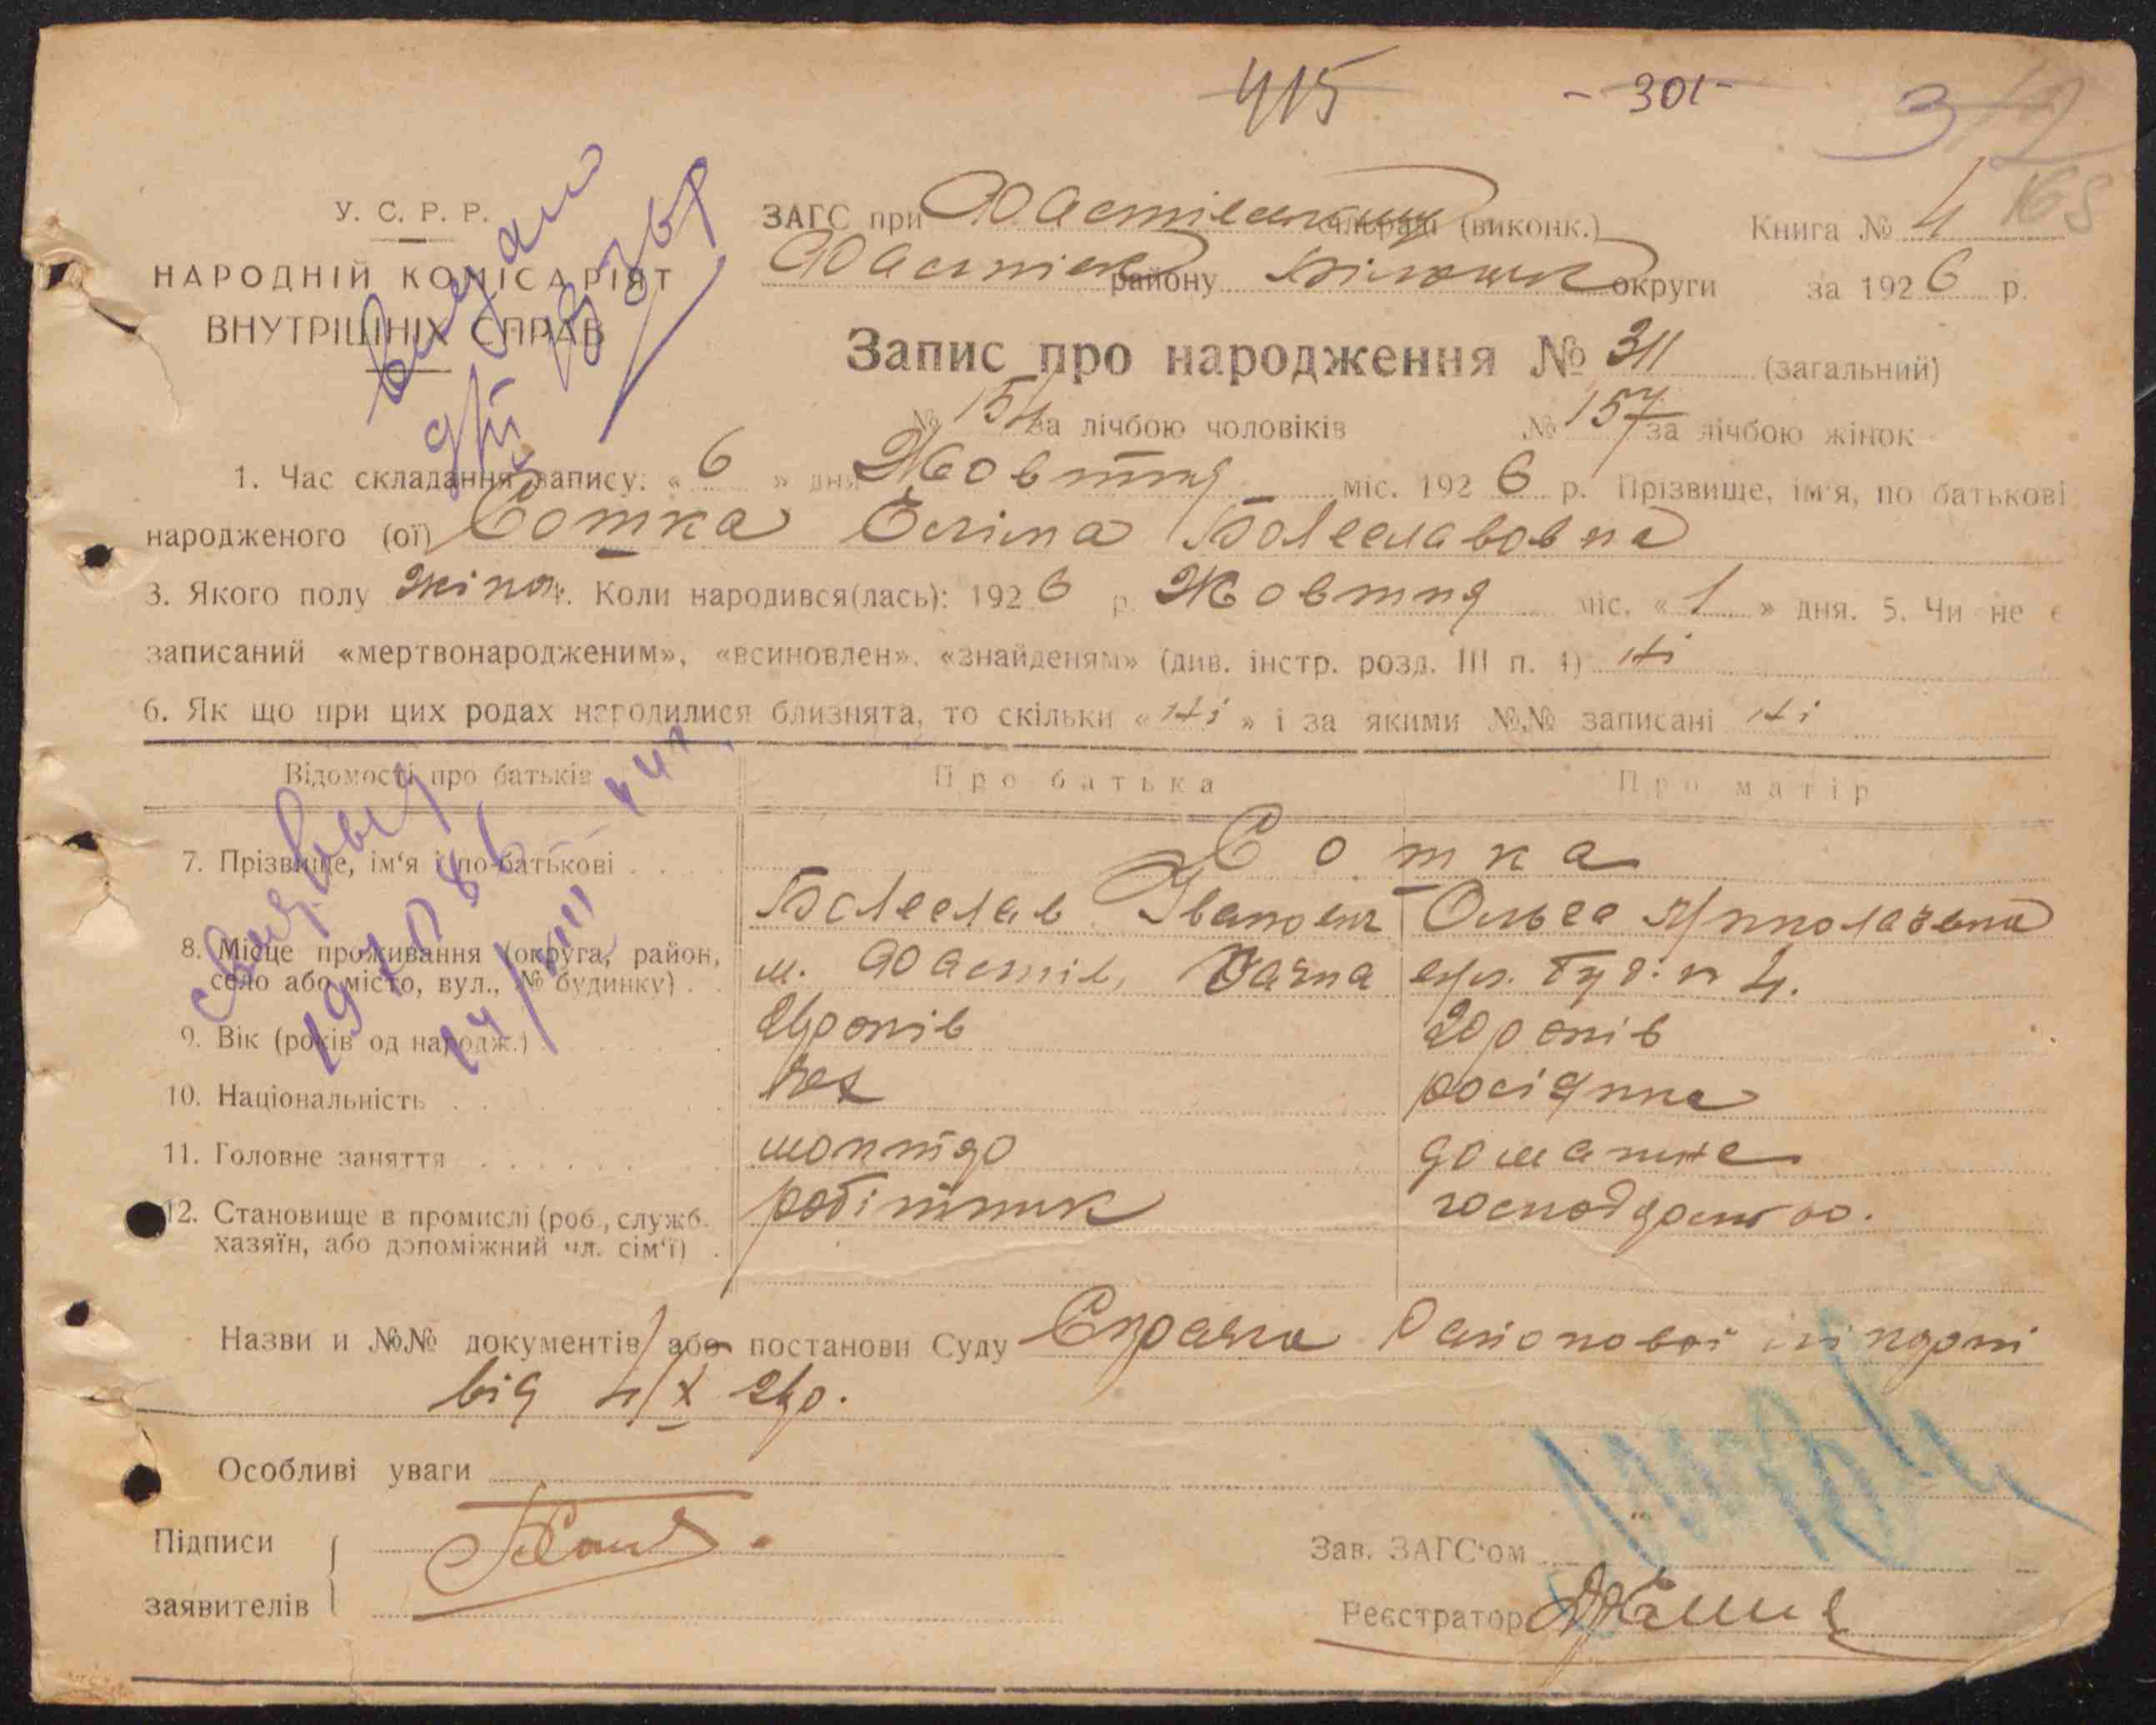 415 - 301 -
168
У. С. Р. Р.
НАРОДНІЙ КОМІСАРІЯТ
ВНУТРІШНІХ СПРАВ
ЗАГС при Фастівському сільраді (виконк.)
Фастівськ району округи
Книга № 4
за 1926 р.
Запис про народження № 311 (загальний)
№ 154 за лічбою чоловіків № 157 за лічбою жінок
1. Час складання запису: « 6 » дня Жовтня міс. 1926 р. Прізвище, ім'я, по батькові
народженого (ої) Сотка Еліна Болеславовна
3. Якого полу жіноч. Коли народився(лась): 1926 р. Жовтня міс. « 1 » дня. 5. Чи не є
записаний «мертвонародженим», «всиновлен», «знайденям» (див. інстр. розд. III п. 4) ні
6. Як що при цих родах народилися близнята, то скільки « ні » і за якими №№ записані ні
Відомості про батьків Про батька Про матір
7. Прізвище, ім'я і по-батькові Сотка
Болеслав Іванович Ольга
8. Місце проживання (округа, район,
село або місто, вул., № будинку) м. Фастів, буд. № 4.
9. Вік (років од народж.) 20 років
10. Національність чех росіянка
11. Головне заняття монтьор домашнє
12. Становище в промислі (роб., служб. робітник господарство.
хазяїн, або допоміжний чл. сім'ї)
Назви и №№ документів або постанови Суду Справка Районової
від 4/X 26р.
Особливі уваги
Підписи
заявителів
Зав. ЗАГС'ом
Реєстратор